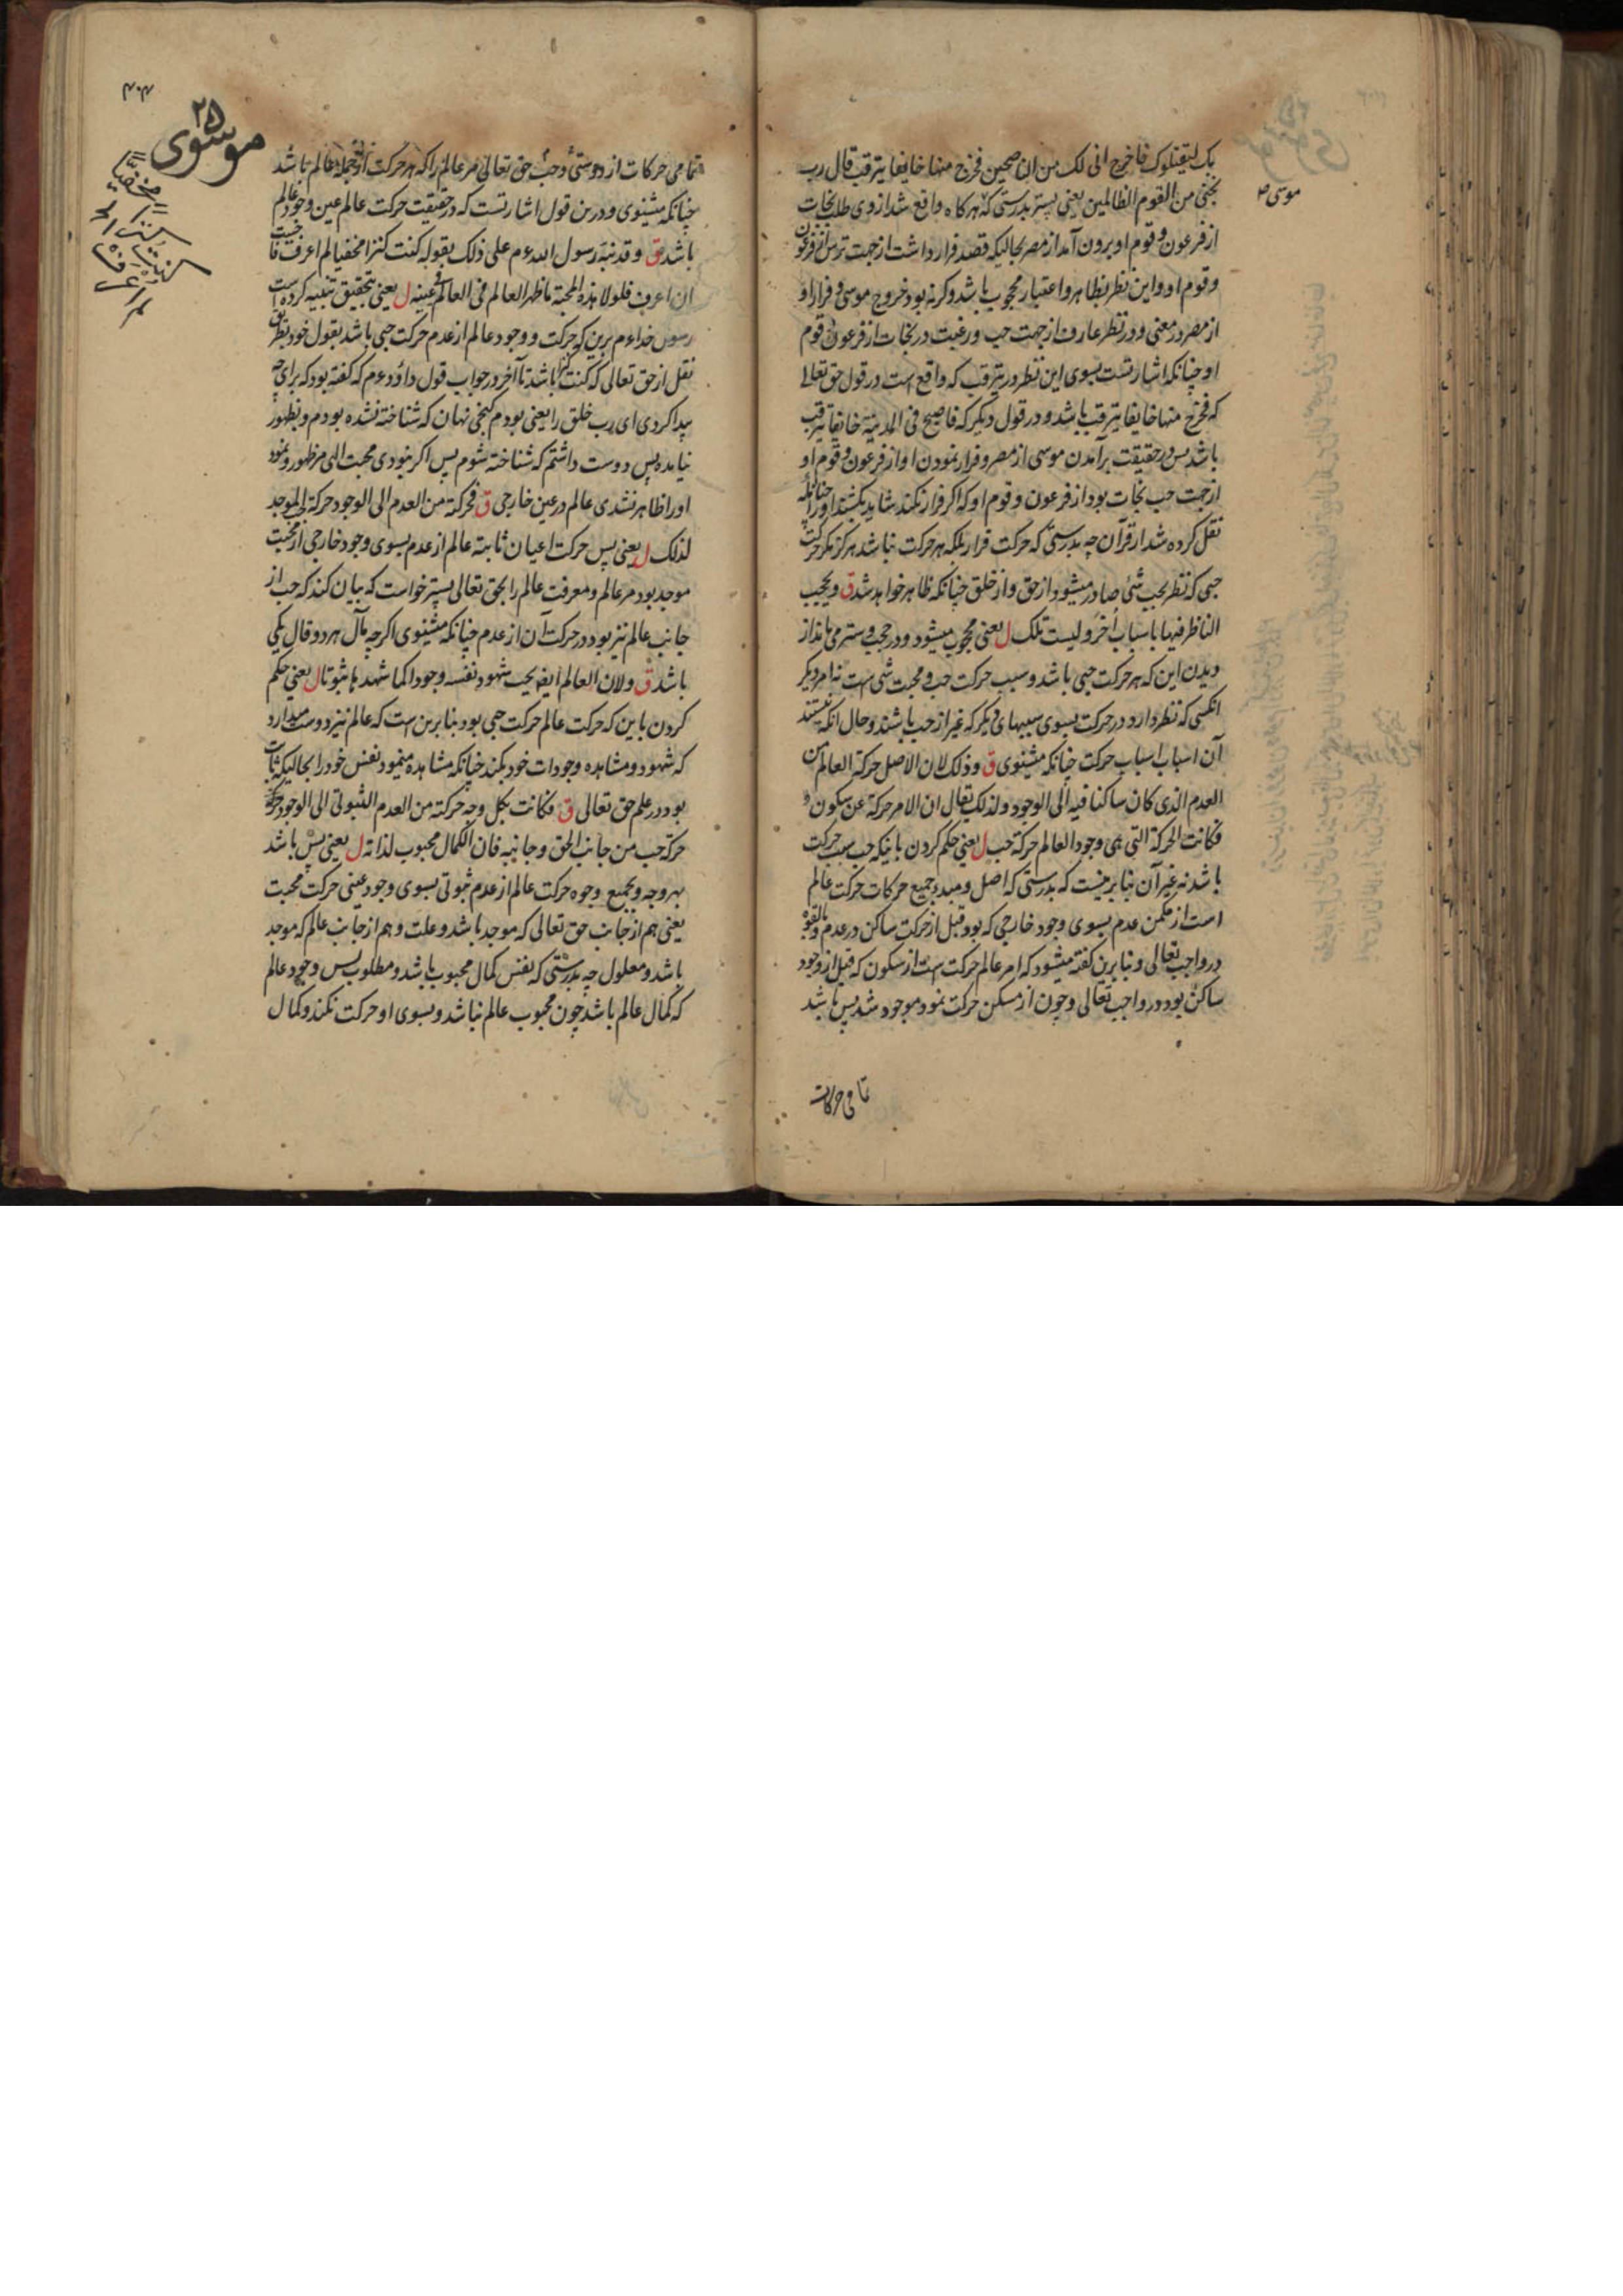 بک لیقتلوک فاخرج انی لک من الناصحین فخرج منها خایفا یترقب قال رب
نجنی من القوم الظالمین یعنی پستر بدرستی که هر کاه واقع شد از وی طلب نجات
از فرعون و قوم او بیرون آمد از مصر بحالیکه قصد فرار داشت از جهت ترس از فرعون
و قوم او و این نظر بظاهر و اعتبار محجوب باشد وکرنه بود خروج موسی و فرار او
از مصر در معنی و در نظر عارف از جهت حب و رغبت در نجات از فرعون و قوم
او چنانکه اشارتست بسوی این نظر در یترقب که واقع است در قول حق تعالی
که فخرج منها خایفا یترقب باشد و در قول دیکر که فاصبح فی المدینة خایفا یترقب
باشد پس در حقیقت برآمدن موسی از مصر و فرار نمودن او از فرعون و قوم او
از جهت حب نجات بود از فرعون و قوم او که اکر فرار نکند شاید بکشند او را چنانکه
نقل کرده شد از قرآن چه بدرستی که حرکت فرار بلکه هر حرکت نباشد هرکز مکر حرکت
حبی که نظر بحب شئ صادر میشود از حق و از خلق چنانکه ظاهر خواهد شد ق و یحجب
الناظر فیها باسباب أخر و لیست تلک ل یعنی محجوب میشود و در حجب و ستر می ماند از
دیدن این که هر حرکت حبی باشد و سبب حرکت حب و محبت شی است نه امر دیکر
انکسی که نظر دارد در حرکت بسوی سببهای دیکر که غیر از حب باشند و حال انکه نیستند
آن اسباب اسباب حرکت چنانکه میشنوی ق و ذلک لان الاصل حرکة العالم من
العدم الذی کان ساکنا فیه الی الوجود و لذلک یقال ان الامر حرکة عن سکون و
فکانت الحرکة التی هی وجود العالم حرکة حب ل یعنی حکم کردن باینکه حب سبب حرکت
باشد نه غیر آن بنابرینست که بدرستی که اصل و مبدء جمیع حرکات حرکت عالم
است از مکمن عدم بسوی وجود خارجی که بود قبل از حرکت ساکن در عدم و بالقوه
در واجب تعالی و بنابرین کفته میشود که امر عالم حرکت است از سکون که قبل از وجود
ساکن بود در واجب تعالی و چون از مسکن حرکت نمود موجود شد پس باشد
تمامی حرکات
موسی ص
۴۰۴
۲۵
موسوی
تمامی حرکات از دوستی و حب حق تعالی مر عالم را که هر حرکت از جمله عالم باشد
چنانکه میشنوی و درین قول اشارتست که در حقیقت حرکت عالم عین وجود عالم
باشد ق و قد نبه رسول الله عم علی ذلک بقوله کنت کنزا مخفیا لم اعرف فاحببت
ان اعرف فلولا هذه المحبة ما ظهر العالم فی العالم فی عینه ل یعنی بتحقیق تنبیه کرده است
رسول خدا عم برین که حرکت و وجود عالم از عدم حرکت حبی باشد بقول خود بطریق
نقل از حق تعالی که کنت کنزا باشد تا آخر در جواب قول داؤد عم که کفته بود که برای چه
پیدا کردی ای رب خلق را یعنی بودم کنجی نهان که شناخته نشده بودم و بظهور
نیامده پس دوست داشتم که شناخته شوم پس اکر نبودی محبت الهی مر ظهور و نمود
او را ظاهر نشدی عالم در عین خارجی ق فحرکته من العدم الی الوجود حرکة الحب الموجد
لذلک ل یعنی پس حرکت اعیان ثابته عالم از عدم بسوی وجود خارجی از محبت
موجد بود مر عالم و معرفت عالم را بحق تعالی پستر خواست که بیان کند که حب از
جانب عالم نیز بود در حرکت آن از عدم چنانکه میشنوی اکرچه مآل هر دو قال یکی
باشد ق و لان العالم ایضا یحب شهود نفسه وجودا کما شهدها ثبوتا ل یعنی حکم
کردن باین که حرکت عالم حرکت حبی بود بنابرین است که عالم نیز دوست میدارد
که شهود و مشاهده وجودات خود بکند چنانکه مشاهده مینمود نفس خود را بحالیکه ثابت
بود در علم حق تعالی ق فکانت بکل وجه حرکته من العدم الثبوتی الی الوجود
حرکة حب من جانب الحق و جانبه فان الکمال محبوب لذاته ل یعنی پس باشد
بهر وجه و بجمیع وجوه حرکت عالم از عدم ثبوتی بسوی وجود عینی حرکت محبت
یعنی هم از جانب حق تعالی که موجد باشد و علت و هم از جانب عالم که موجد
باشد و معلول چه بدرستی که نفس کمال محبوب باشد و مطلوب پس وجود عالم
که کمال عالم باشد چون محبوب عالم نباشد و بسوی او حرکت نکند و کمال